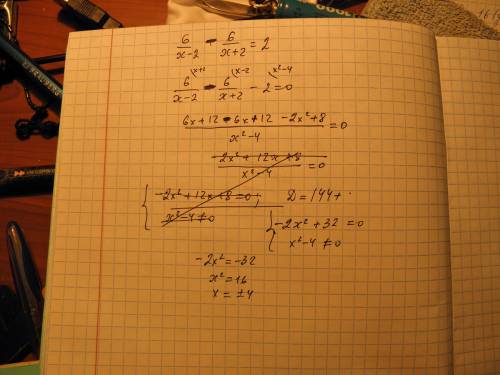 6/(x-2) - 6/(x+2) = 2
6^(x+2/(x-2) - 6^(x-2/(x+2) - 2^(x²-4 = 0
(6x+12-6x+12-2x²+8)/(x²-4) = 0
(-2x²+12x+8)/(x²-4) = 0
{-2x²+12x+8=0; D=144+
x²-4≠0
{-2x²+32=0
x²-4≠0
-2x²=-32
x²=16
x=±4